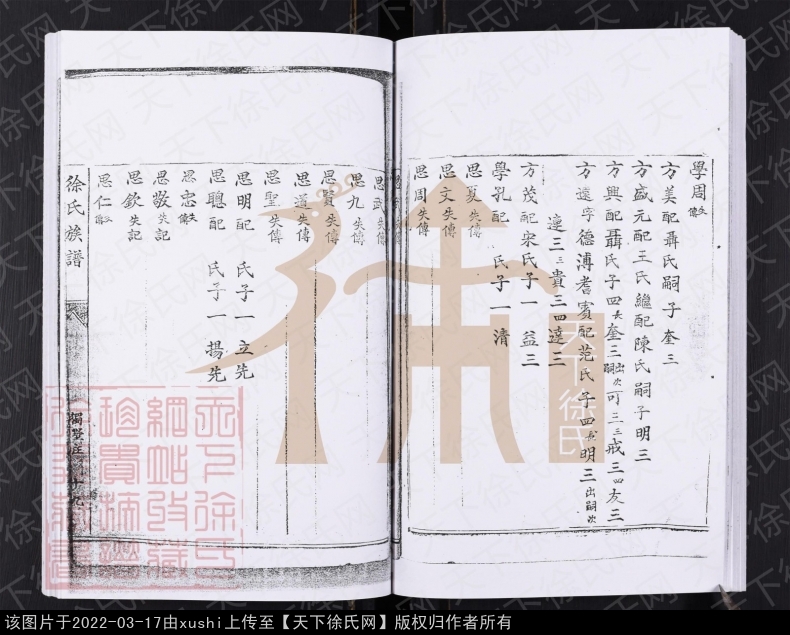 學周傳失
方美配聶氏嗣子奎三
方盛元配王氏繼配陳氏嗣子明三
方興配聶氏子四長奎三出嗣次可三三戒三四友三
方遠字德溥耆賓配范氏子四長明三出嗣次
達三三貴三四遠三
方茂配宋氏子一益三
學孔配 氏子一清
思夏失傳
思文失傳
思周失傳
思武失傳
思九失傳
思賢失傳
思道失傳
思聖失傳
思明配 氏子一立先
思聰配 氏子一揚先
思忠失傳
思敬失記
思欽失記
思仁失傳
徐氏族譜
十九
天下徐氏
天下徐氏网
该图片于2022-03-17由xushi上传至【天下徐氏网】版权归作者所有